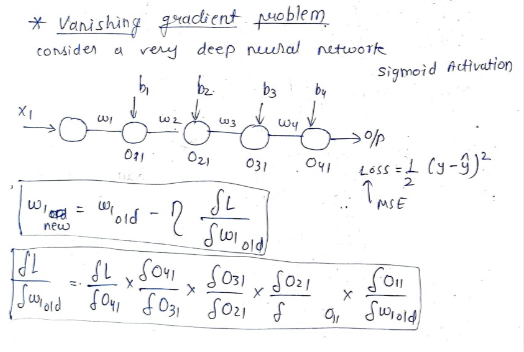 * Vanishing gradient problem
consider a very deep neural network
Sigmoid Activation
b1 b2 b3 b4
x1 w1 w2 w3 w4 o/p
O11 O21 O31 O41
Loss = 1/2 (y-ŷ)²
↑ MSE
w1 new = w1 old - η δL/δw1 old
δL/δw1 old = δL/δO41 × δO41/δO31 × δO31/δO21 × δO21/δO11 × δO11/δw1 old